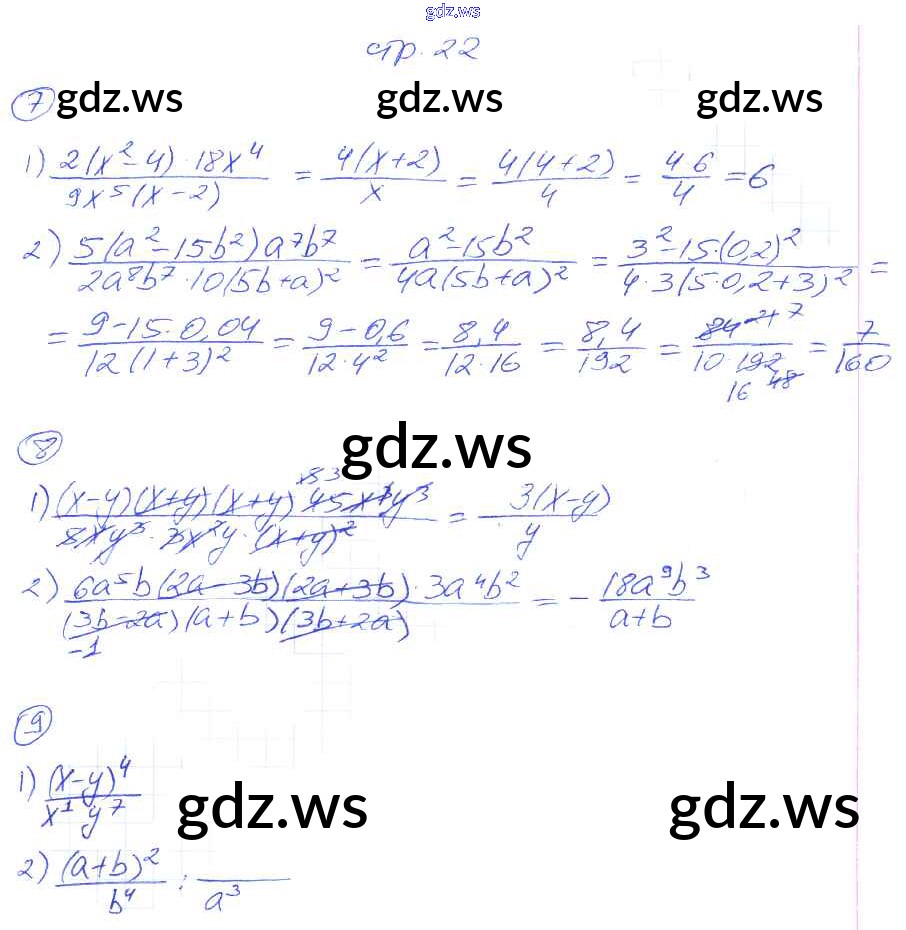 gdz.ws
стр. 22
7 gdz.ws gdz.ws gdz.ws
1) 2(x² - 4) · 18x⁴ / 9x⁵(x - 2) = 4(x + 2) / x = 4(4 + 2) / 4 = 4 · 6 / 4 = 6
2) 5(a² - 15b²)a⁷b⁷ / 2a⁸b⁷ · 10(5b + a)² = a² - 15b² / 4a(5b + a)² = 3² - 15 · (0,2)² / 4 · 3(5 · 0,2 + 3)² =
= 9 - 15 · 0,04 / 12(1 + 3)² = 9 - 0,6 / 12 · 4² = 8,4 / 12 · 16 = 8,4 / 192 = 84 21 7 / 10 · 192 48 16 = 7 / 160
8 gdz.ws
1) (x - y)(x + y)(x + y) 45x³y³ / y³ · 3x²y · (x + y)² = 3(x - y) / y
2) 6a⁵b(2a - 3b)(2a + 3b) · 3a⁴b² / (3b - 2a)(a + b)(3b + 2a) -1 = - 18a⁹b³ / a + b
9
1) (x - y)⁴ / x¹ y⁷ gdz.ws gdz.ws
2) (a + b)² / b⁴ : / a³